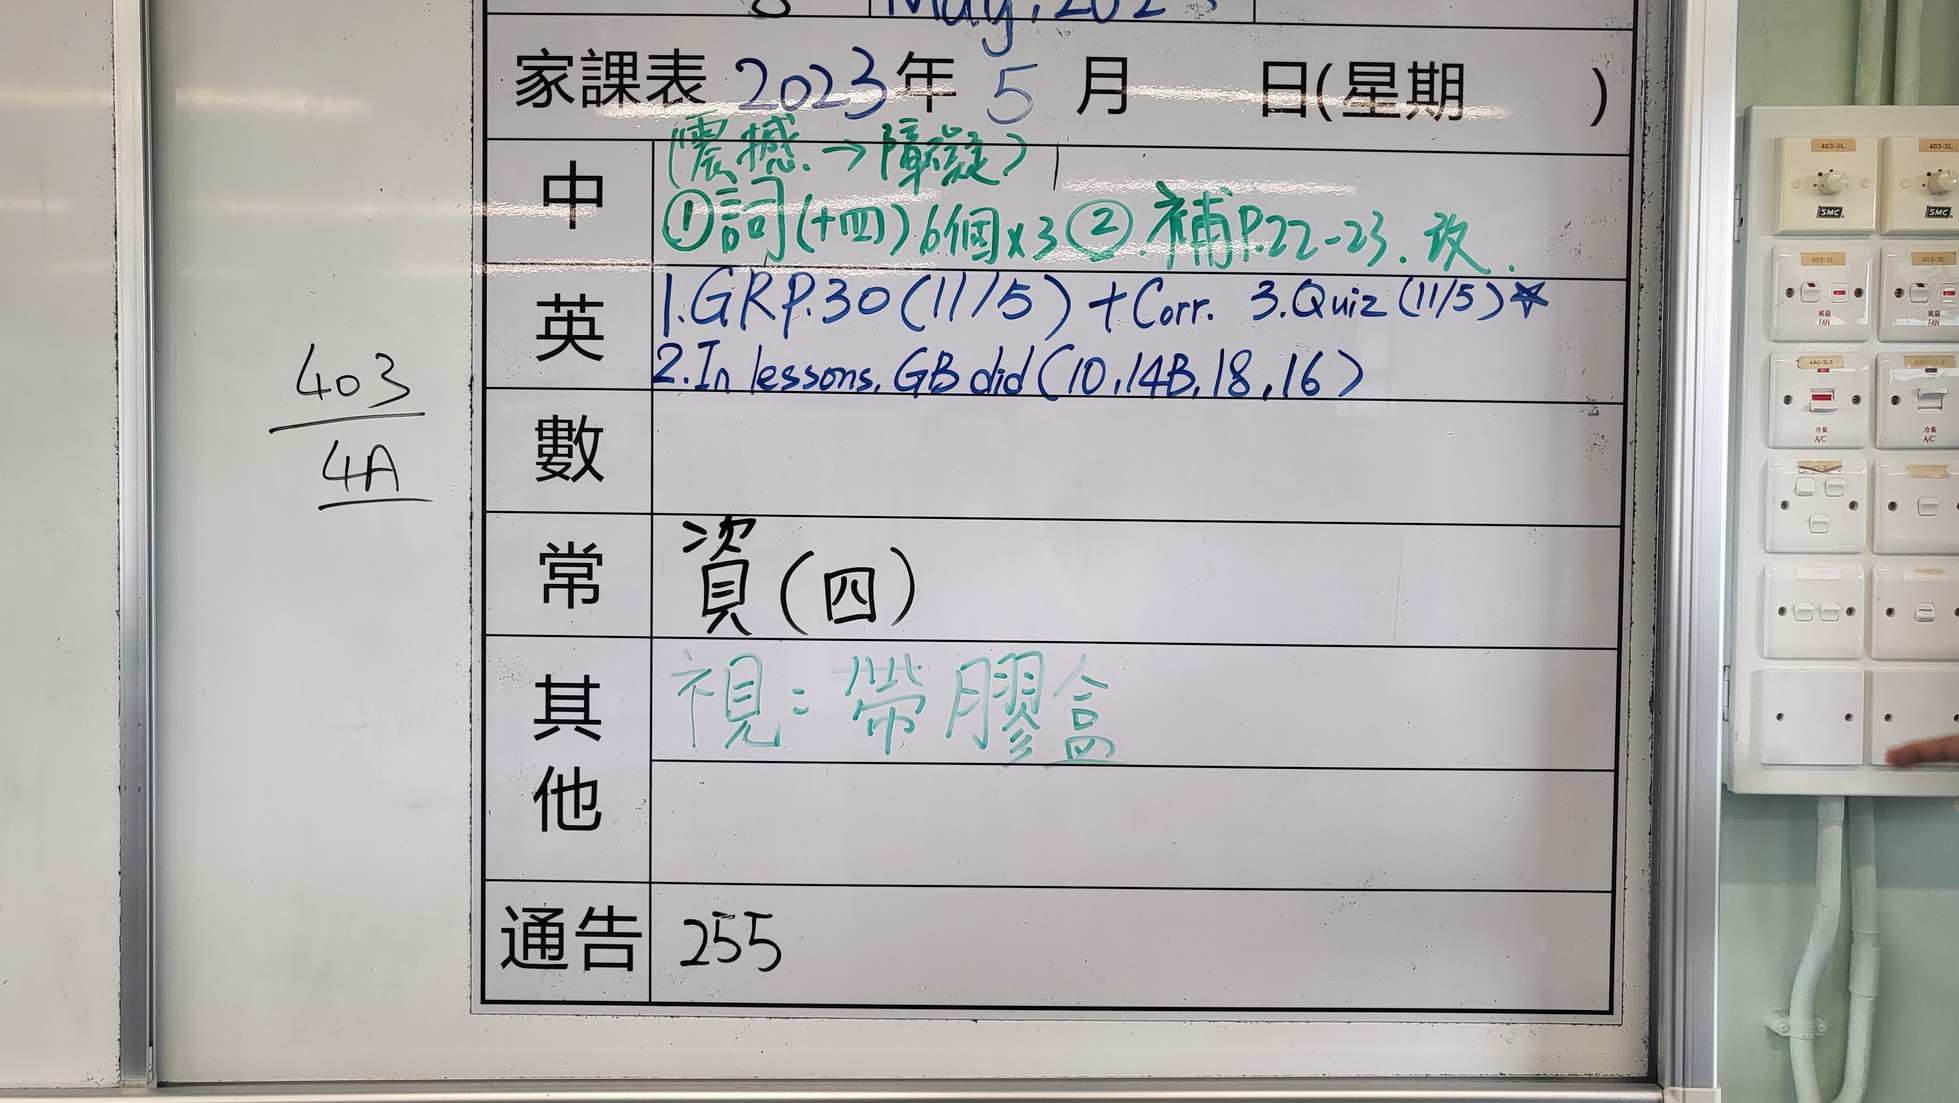 May, 202
家課表 2023年 5 月 日(星期 )
中
(震撼 → 障礙)
①詞(十四)6個x3 ②.補P.22-23.改.
英
1.GRP.30(11/5)+Corr. 3.Quiz(11/5)★
2.In lessons, GB did(10,14B,18,16)
403
4A
數
常
資(四)
其他
視:帶膠盒
通告
255
403-3L
403-3L
SMC
SMC
403-3L
403-3L
風扇
FAN
風扇
FAN
冷氣
A/C
冷氣
A/C